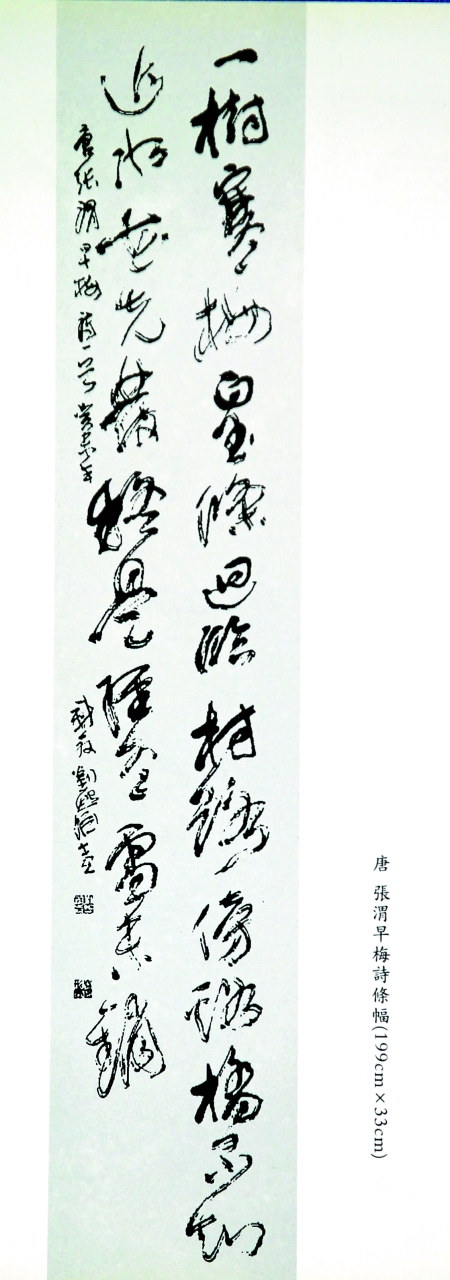 一樹寒梅白玉條迥臨村路傍谿橋不知
近水花先發疑是經春雪未銷
唐張渭早梅詩一首癸未年
唐 張渭早梅詩條幅(199cm×33cm)